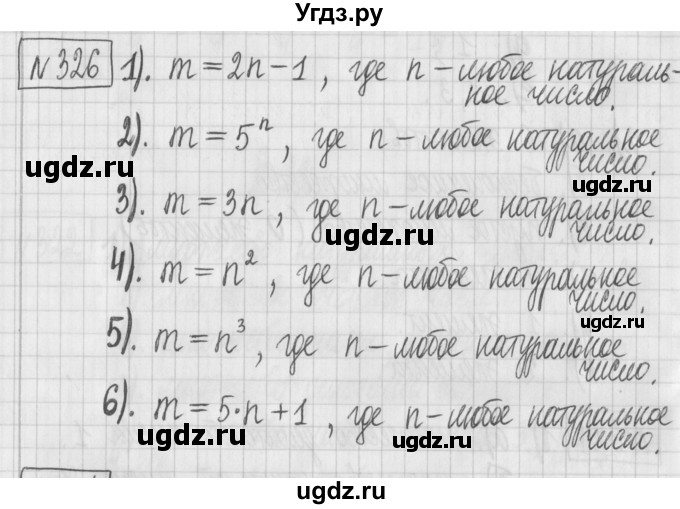 Угдз.ру
№326 1). m = 2n - 1, где n - любое натураль-
ное число.
2). m = 5ⁿ, где n - любое натуральное
число.
ugdz.ru
ugdz.ru
3). m = 3n, где n - любое натуральное
число.
ugdz.ru
ugdz.ru
4). m = n², где n - любое натуральное
число.
ugdz.ru
5). m = n³, где n - любое натуральное
число.
6). m = 5·n + 1, где n - любое натуральное
число.
ugdz.ru
ugdz.ru
ugdz.ru
ugdz.ru